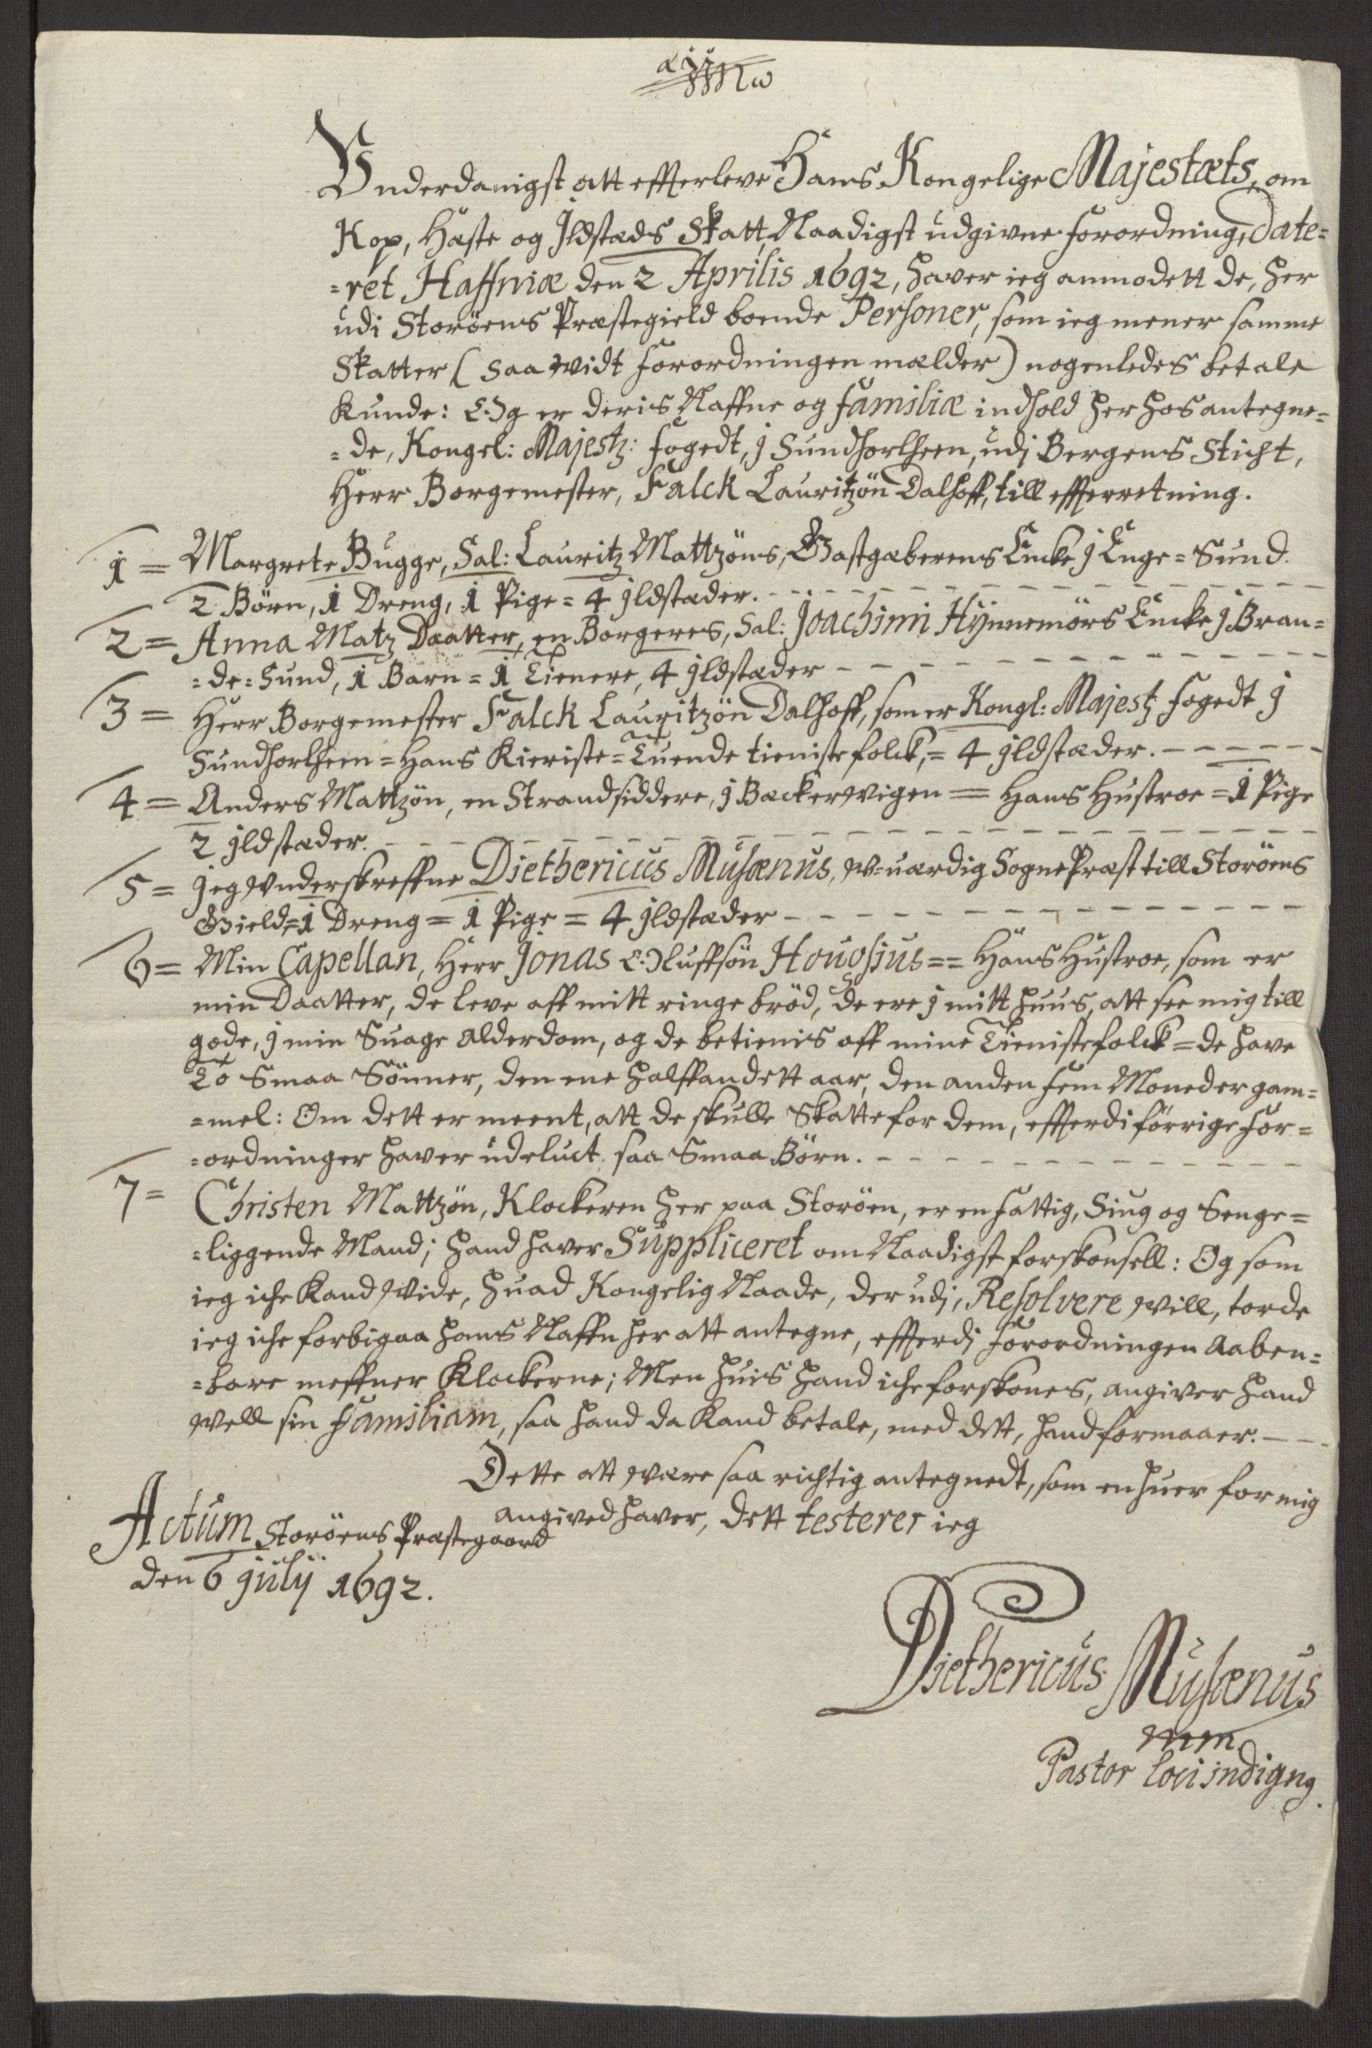 Vnderdanigst att effterleve Hans Kongelige Majestæts, om
Kop, Hæste og Jldstæds Skatt, Naadigst udgivne forordning, Date=
=ret Haffniæ den 2 Aprilis 1692, haver ieg anmodett de, her
udi Storöens Præstegield boende Personer, som ieg mener samme
Skatter (saa widt forordningen mælder) nogenledes betale
Kunde: Og er deris Naffne og familiæ indhold her hos antegne=
=de, Kongel: Majestz: fogedt, j Sundhorlheen, udj Bergens Sticht,
Herr Borgemester, Falck Lauritzön Dalhoff, till effterretning.
1 = Margrete Bugge, Sal: Lauritz Mattzöns, Gastgæberens Encke j Enge=Sund.
2 Börn, 1 Dreng, 1 Pige = 4 jldstæder.
2 = Anna Matz Daatter, en Borgeres, Sal: Joachimi Hÿnnemörs Encke j Bran=
=de=Sund, 1 Barn = 1 Tienere, 4 jldstæder
3 = Herr Borgemester Falck Lauritzön Dalhoff, som er Kongl: Majestz fogedt j
Sundhorlheen = Hans Kieriste = Tuende tienistefolck, = 4 jldstæder.
4 = Anders Mattzön, en Strandsiddere, j Backerwigen = Hans Hustroe = 1 Pige
2 jldstæder.
5 = Jeg Vnderskreffne Diethericus Musænus, W=uærdig SognePræst till Storöens
Gield = 1 Dreng = 1 Pige = 4 jldstæder
6 = Min Capellan, Herr Jonas Oluffsön Houosius == Hans Hustroe, som er
min Daatter, de leve aff mitt ringe bröd, de ere j mitt huus, att see mig till
gode, j min Suage Alderdom, og de betienis aff mine Tienistefolck = de have
To Smaa Sönner, den ene halffandett aar, den anden fem Moneder gam=
=mel: Om dett er meent, att de skulle Skatte for dem, effterdi förrige for=
=ordninger haver udeluct saa Smaa Börn.
7 = Christen Mattzön, Klockeren her paa Storöen, er en fattig, Siug og Senge=
=liggende Mand; hand haver Suppliceret om Naadigst forskonsell: Og som
ieg iche Kand Wide, huad Kongelig Naade, der udj, Resolvere will, torde
ieg iche forbigaa hans Naffn her att antegne, effterdj forordningen Aaben=
=bare neffner Klockerne; Men huis hand iche forskones, angiver hand
well sin Familiam, saa hand da Kand betale, med dett, hand formaaer.
Dette att være saa richtig antegnedt, som en huer for mig
angived haver, dett testerer ieg
Actum Storöens Præstegaard
den 6 julij 1692.
Diethericus Musænus
mm
Pastor loci indigng.